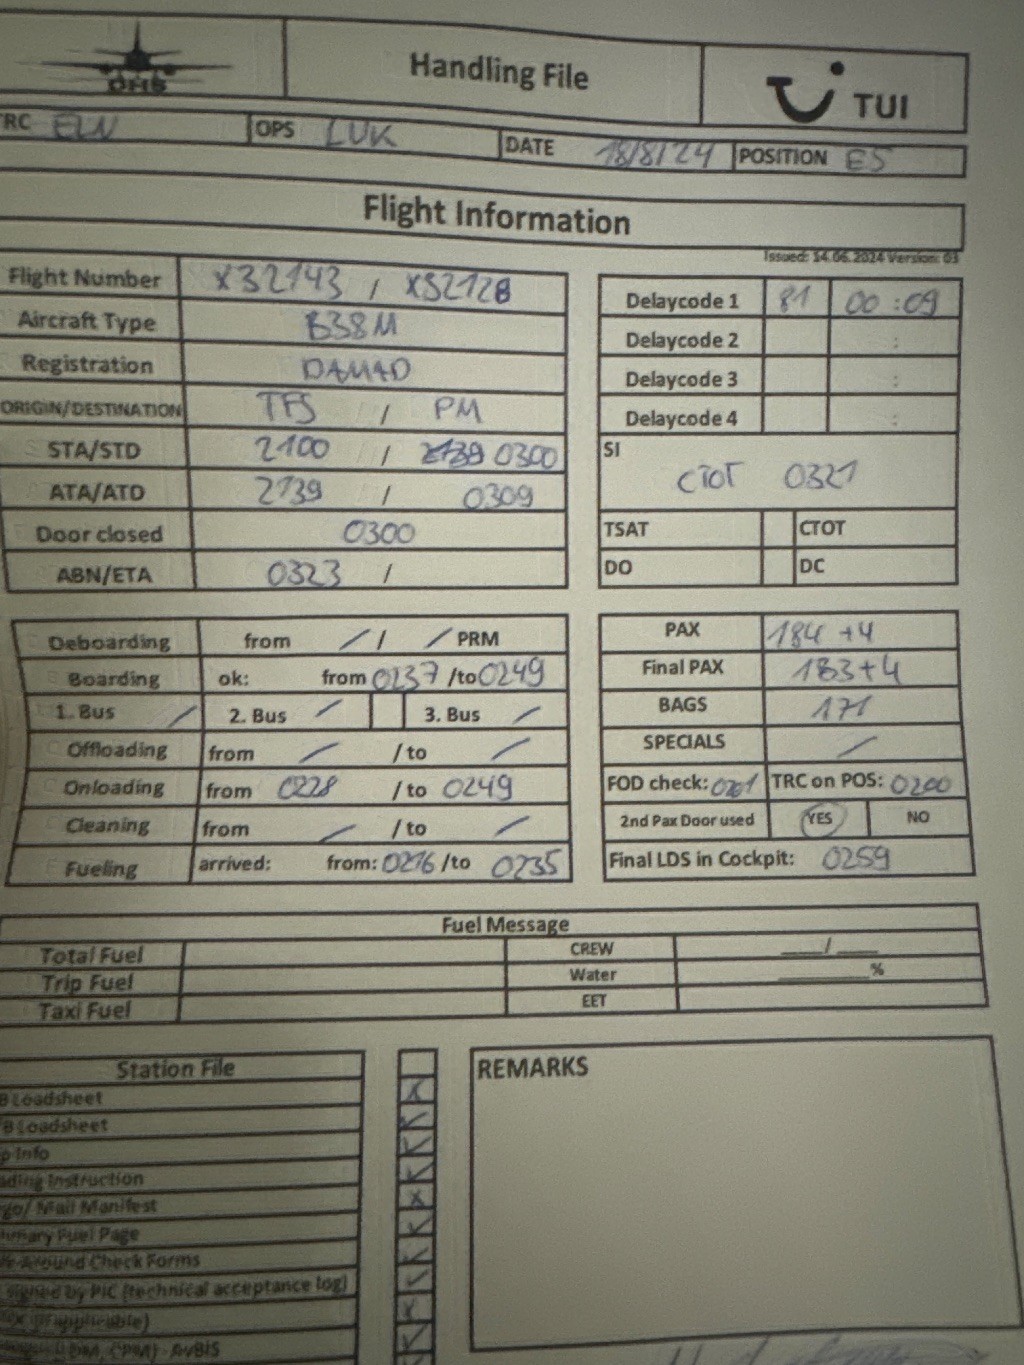 OHS Handling File TUI
TRC ELN OPS LUK DATE 18/8/24 POSITION E5
Flight Information
Issued: 14.06.2024 Version: 03
Flight Number X32143 / X32128
Aircraft Type B38M
Registration DAMAD
ORIGIN/DESTINATION TFS / PM
STA/STD 2100 / 0300
ATA/ATD 2139 / 0309
Door closed 0300
ABN/ETA 0323 /
Delaycode 1 81 00:09
Delaycode 2 :
Delaycode 3 :
Delaycode 4 :
SI
CTOT 0321
TSAT CTOT
DO DC
Deboarding from / / / PRM
Boarding ok: from 0237 /to 0249
1. Bus / 2. Bus / 3. Bus /
Offloading from / / to /
Onloading from 0228 / to 0249
Cleaning from / / to /
Fueling arrived: from: 0216 /to 0235
PAX 184 +4
Final PAX 183+4
BAGS 171
SPECIALS /
FOD check: 0201 TRC on POS: 0200
2nd Pax Door used YES NO
Final LDS in Cockpit: 0259
Fuel Message
Total Fuel CREW ___/___
Trip Fuel Water ______%
Taxi Fuel EET
Station File
Loadsheet X
Loadsheet
Info
Instruction
Mail Manifest X
Fuel Page
Around Check Forms
signed by PIC (technical acceptance log)
(if applicable)
CPM) - AvBIS
REMARKS